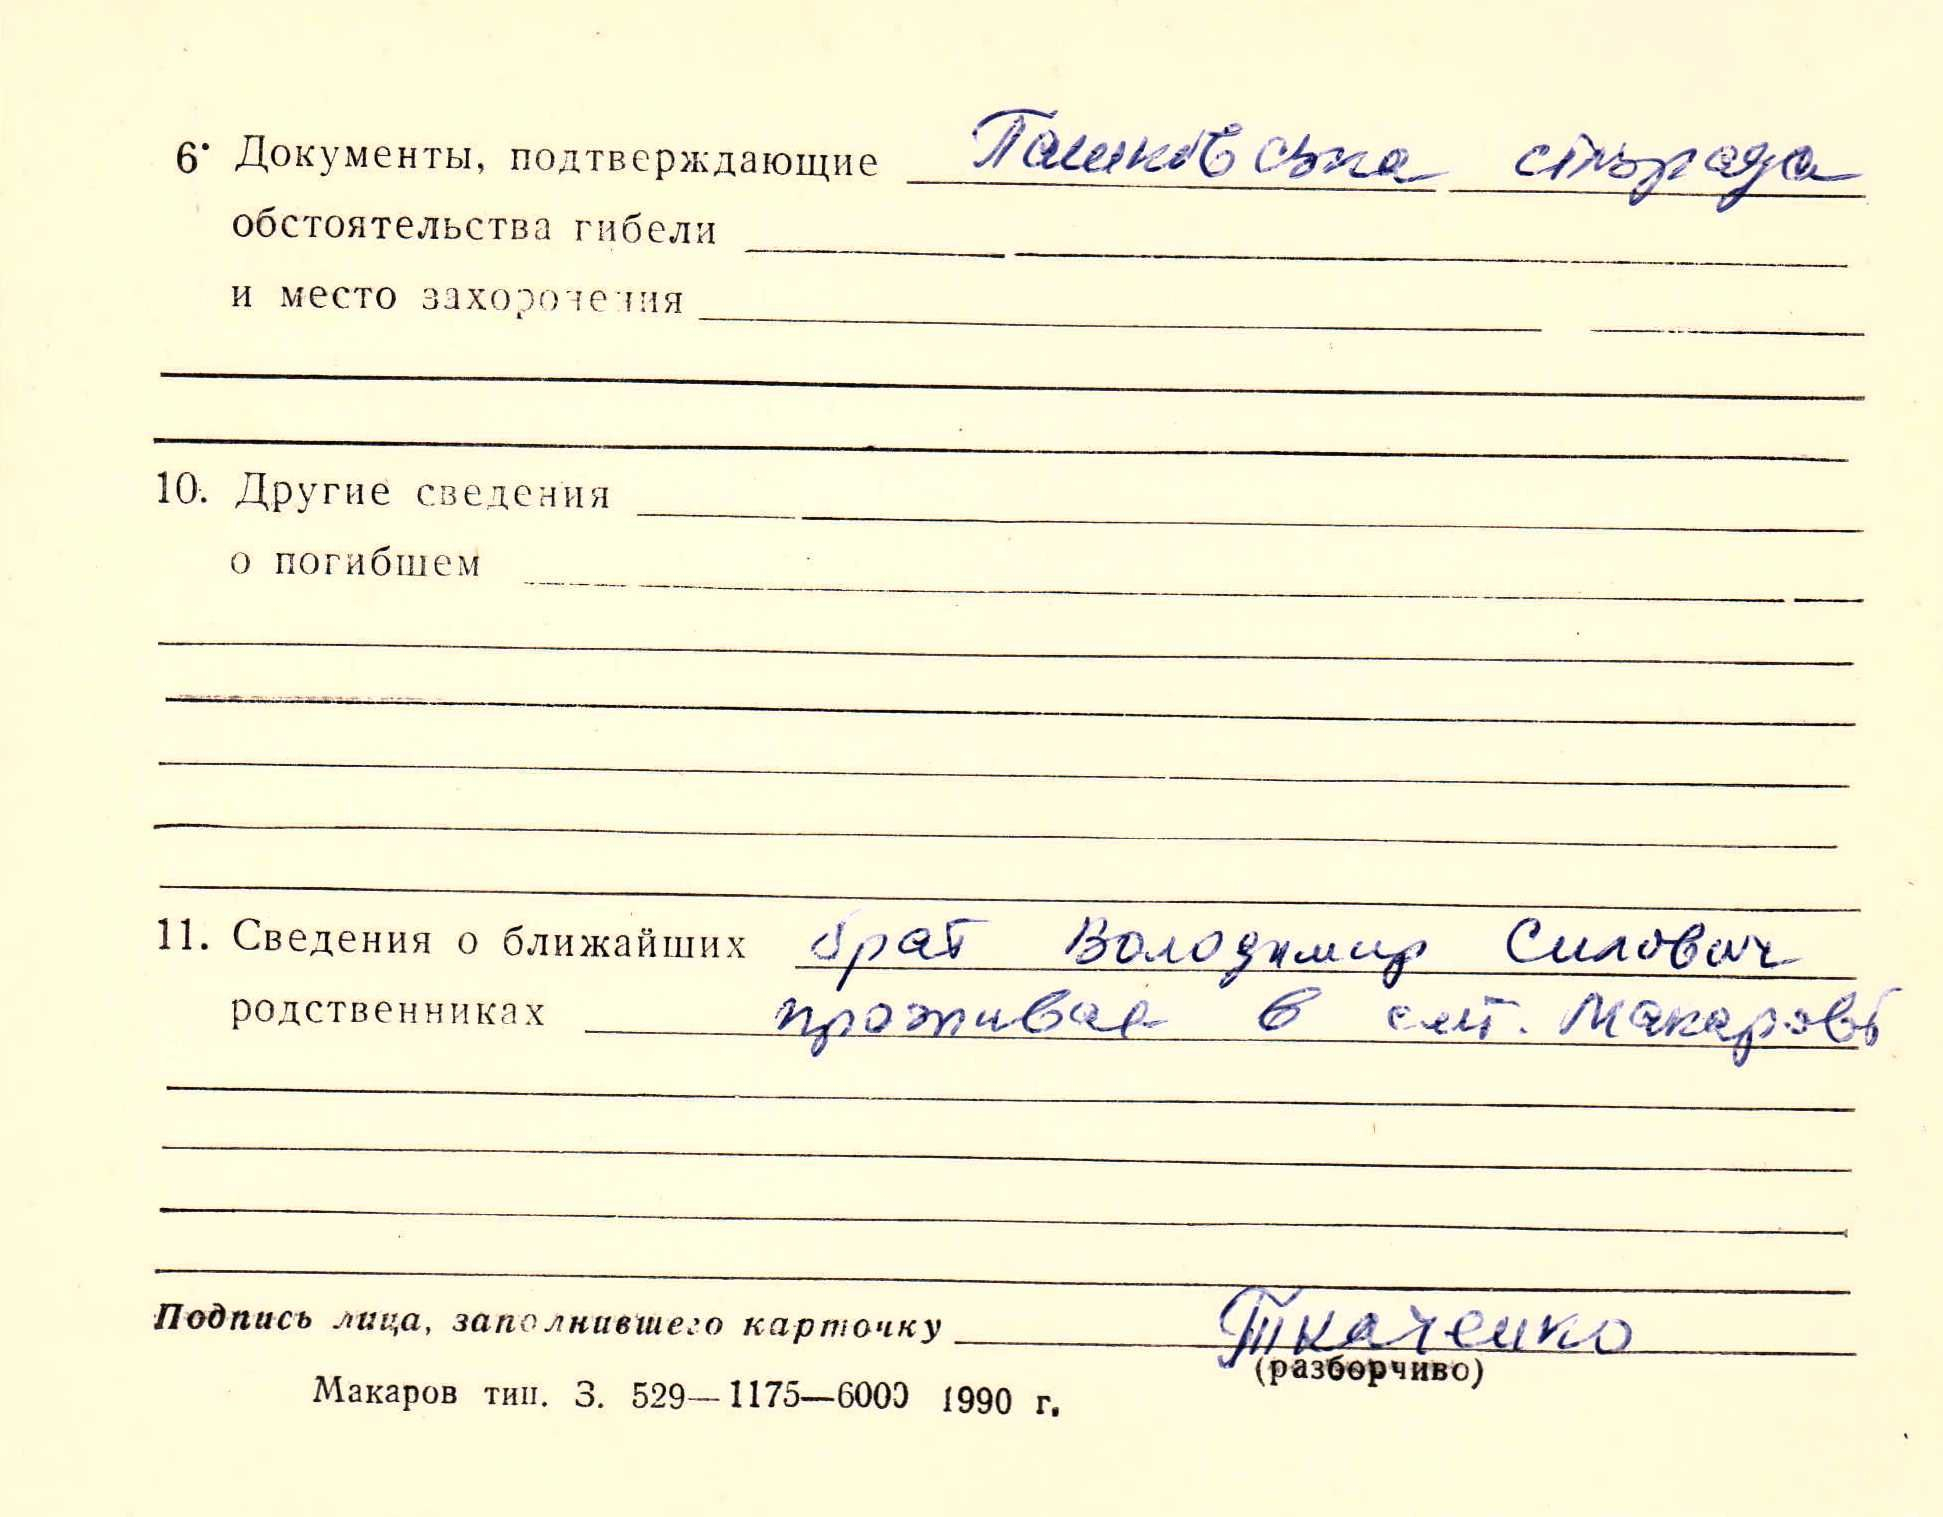 6. Документы, подтверждающие Пашківська сільрада
обстоятельства гибели
и место захоронения
10. Другие сведения
о погибшем
11. Сведения о ближайших брат Володимир Силович
родственниках проживае в смт. Макарові
Подпись лица, заполнившего карточку Ткаченко
(разборчиво)
Макаров тип. З. 529—1175—6000 1990 г.